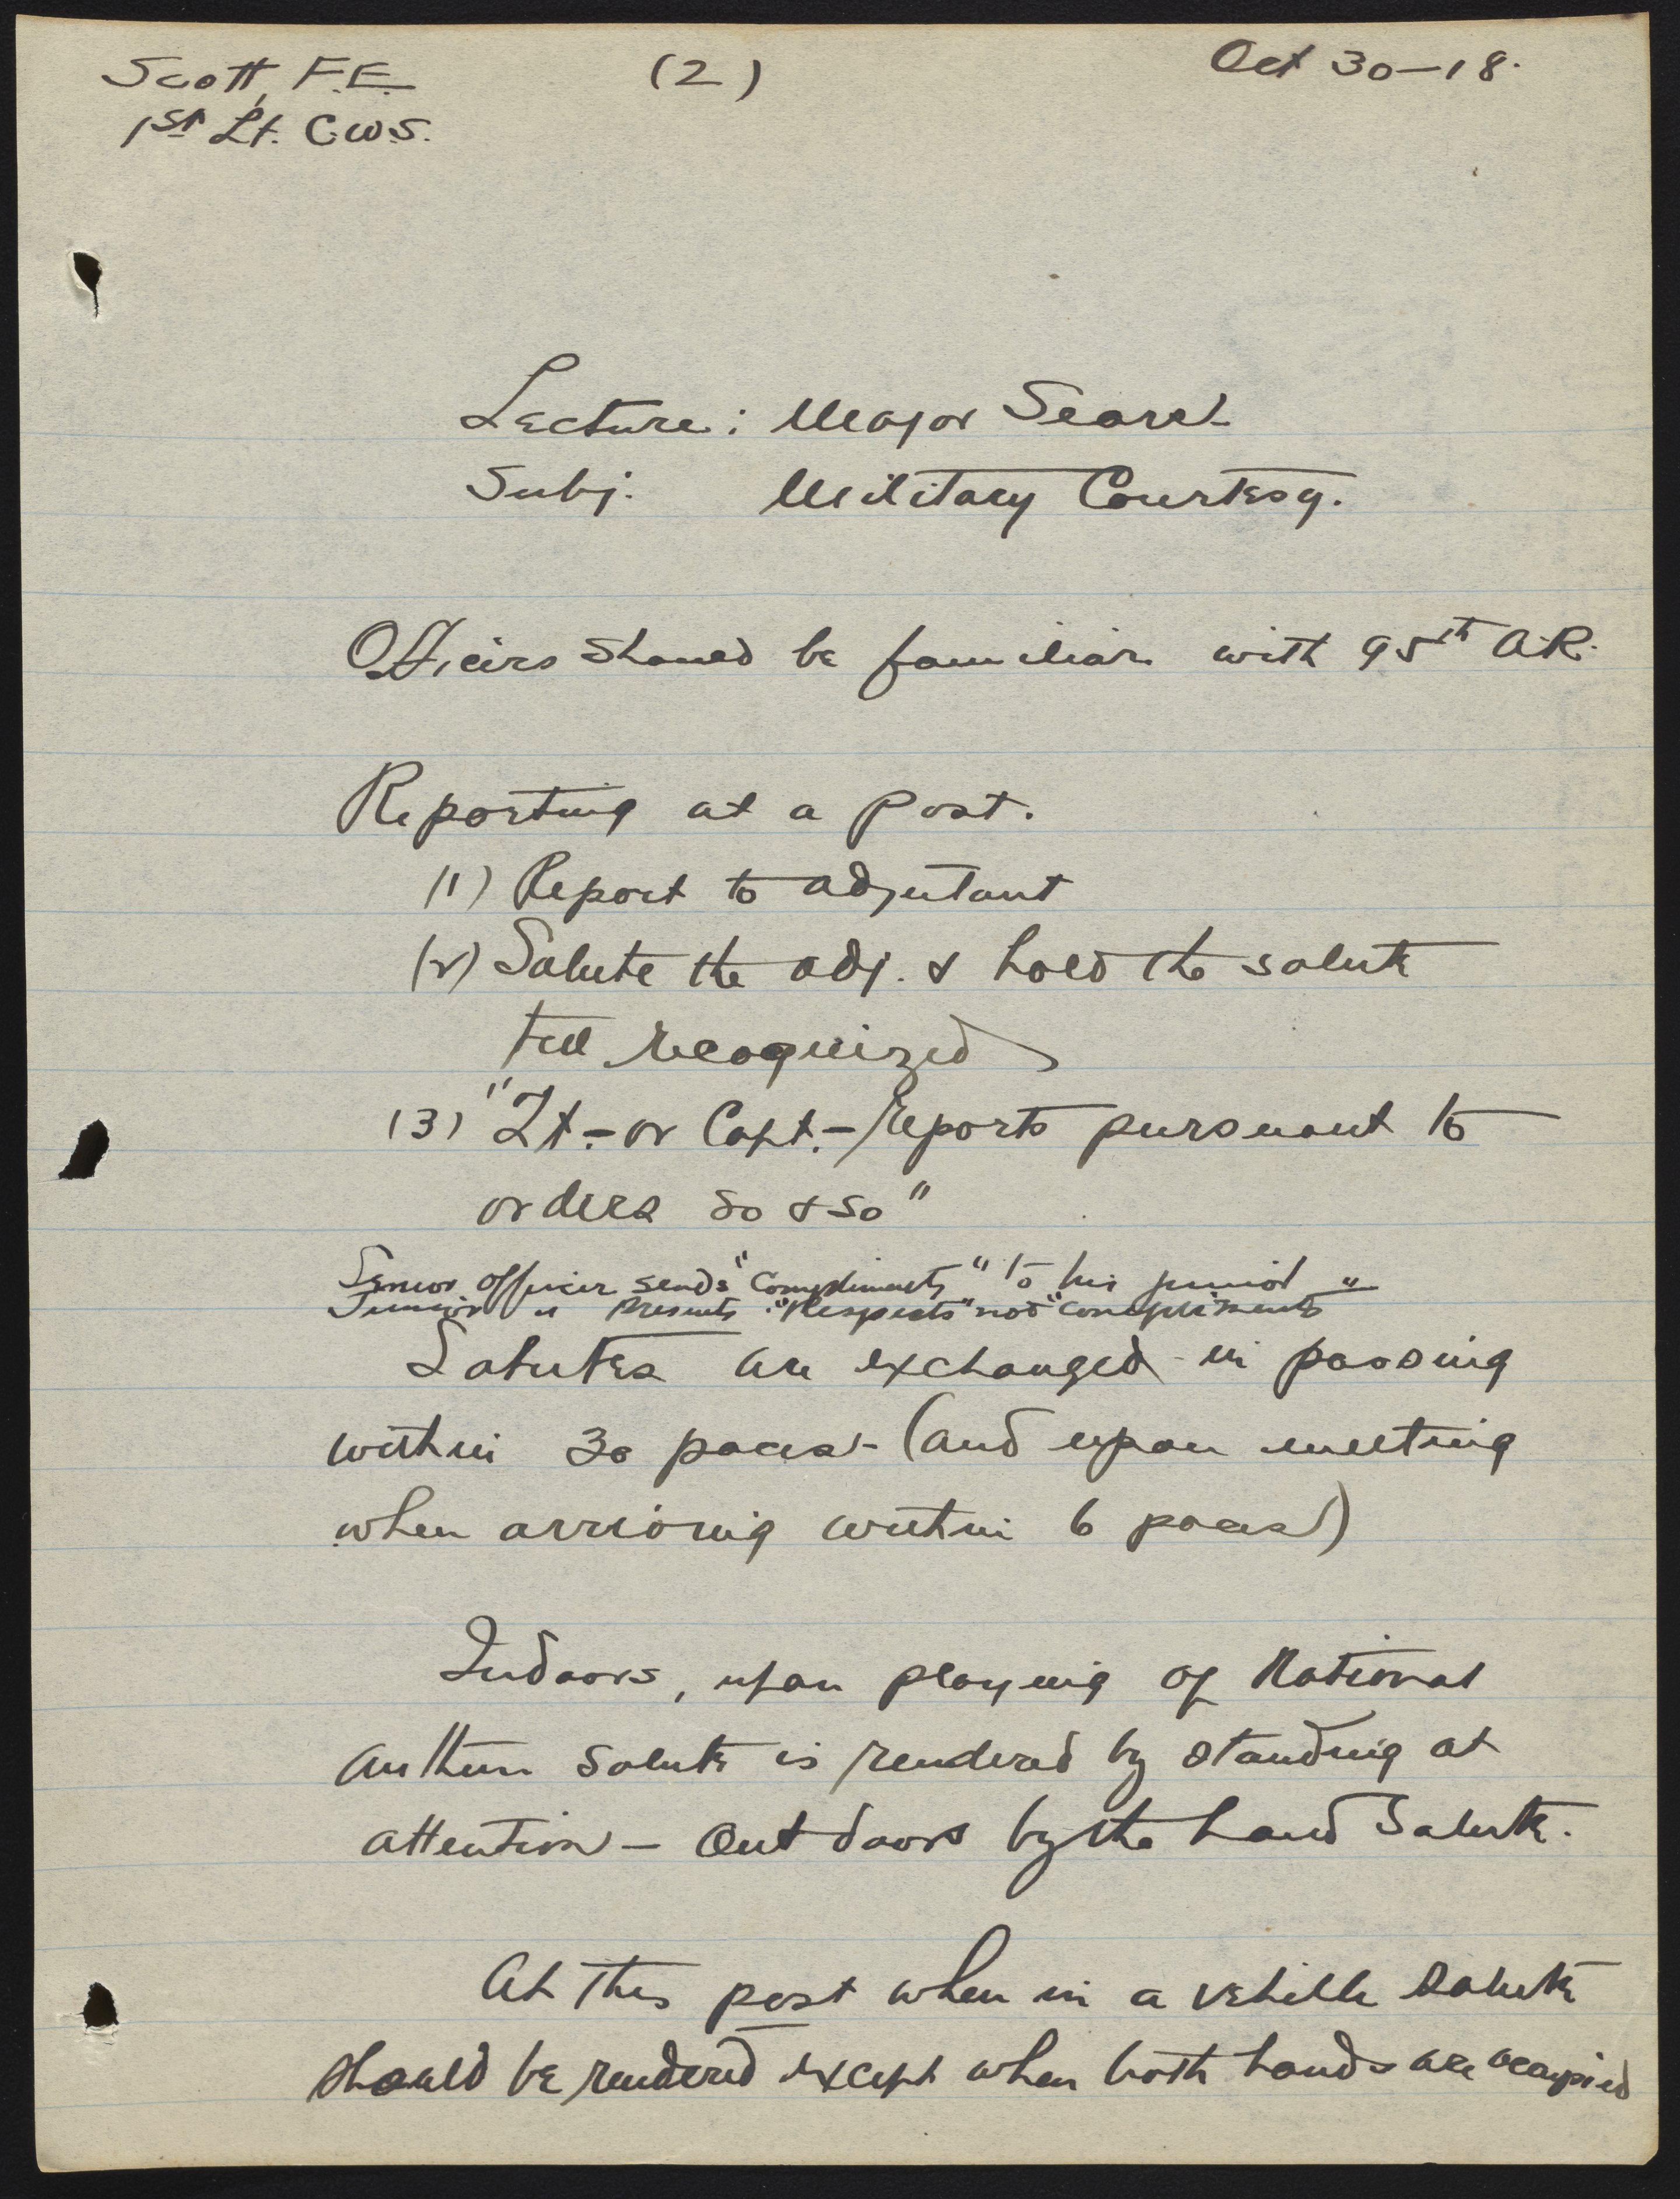 Scott, F.E. (2) Oct 30-18.
1st Lt. C.W.S.
Lecture: Major
Subj. Military Courtesy.
Officers should be familiar with 95th A.R.
Reporting at a post.
(1) Report to adjutant
(2) Salute the adj. & hold the salute
till recognized
(3) "Lt - or Capt. - reports pursuant to
orders so & so"
Senior officer sends "Compliments" to his junior
Junior " presents "Respects" not "compliments"
Salutes are exchanged in passing
within 30 paces - (and upon meeting
when arriving within 6 paces)
Indoors, upon playing of National
Anthem salute is rendered by standing at
attention - Out doors by the hand salute.
At this post when in a vehicle salute
should be rendered except when both hands are occupied